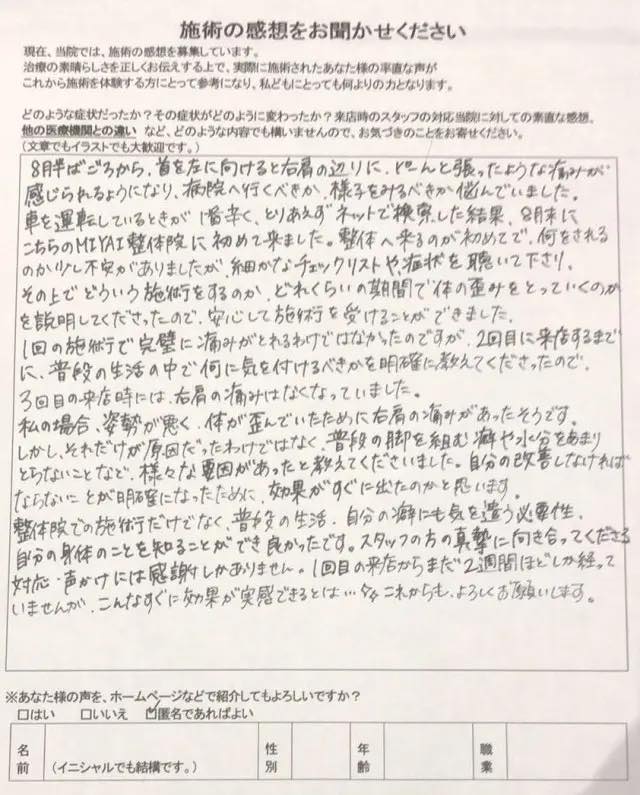 施術の感想をお聞かせください
現在、当院では、施術の感想を募集しています。
治療の素晴らしさを正しくお伝えする上で、実際に施術されたあなた様の率直な声が
これから施術を体験する方にとって参考になり、私どもにとっても何よりの力となります。
どのような症状だったか？その症状がどのように変わったか？来店時のスタッフの対応当院に対しての素直な感想。
他の医療機関との違い など、どのような内容でも構いませんので、お気づきのことをお寄せください。
（文章でもイラストでも大歓迎です。）
8月半ばごろから、首を左に向けると右肩の辺りに、ピーンと張ったような痛みが
感じられるようになり、病院へ行くべきか、様子をみるべきか悩んでいました。
車を運転しているときが1番辛く、とりあえずネットで検索した結果、8月末に
こちらのMIYAI整体院に初めて来ました。整体へ来るのが初めてで、何をされる
のか少し不安がありましたが、細かなチェックリストや、症状を聴いて下さり、
その上でどういう施術をするのか、どれくらいの期間で体の歪みをとっていくのか
を説明してくださったので、安心して施術を受けることができました。
1回の施術で完璧に痛みがとれるわけではなかったのですが、2回目に来店するまで
に、普段の生活の中で何に気を付けるべきかを明確に教えてくださったので、
3回目の来店時には、右肩の痛みはなくなっていました。
私の場合、姿勢が悪く、体が歪んでいたために右肩の痛みがあったそうです。
しかし、それだけが原因だったわけではなく、普段の脚を組む癖や水分をあまり
とらないことなど、様々な要因があったと教えてくださいました。自分の改善しなければ
ならないことが明確になったために、効果がすぐに出たのかと思います。
整体院での施術だけでなく、普段の生活、自分の癖にも気を遣う必要性、
自分の身体のことを知ることができ良かったです。スタッフの方の真摯に向き合ってくださる
対応・声かけには感謝しかありません。1回目の来店からまだ2週間ほどしか経って
いませんが、こんなすぐに効果が実感できるとは…々々これからも、よろしくお願いします。
※あなた様の声を、ホームページなどで紹介してもよろしいですか？
□はい □いいえ ☑匿名であればよい
名前 （イニシャルでも結構です。） 性別 年齢 職業